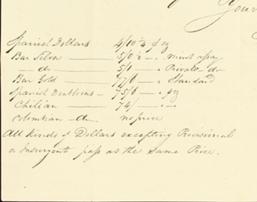 Your
Spanish Dollars 4/10½ p oz
Bar Silver 5/0½ — " must assay
— do — 5/1 — " Private do
Bar Gold — " Standard
Spanish Doubloons — 75/6 — " oz
Chilian — 74/ — "
Colombian do no price
All Kinds of Dollars excepting Provisional
or Insurgent pass at the Same Price.